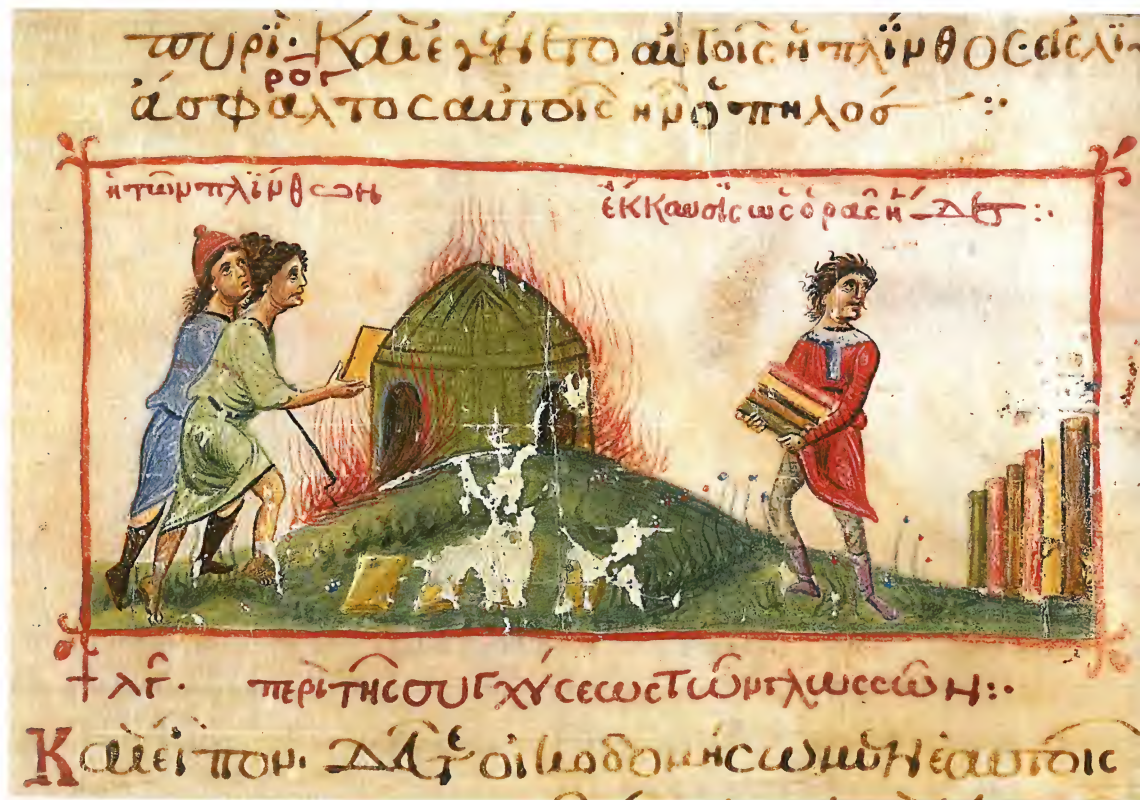 πυρϊ· Καὶ ἐγένετο αὐτοῖς ἡ πλΐνθος εἰς λΐ
ἄσφαλτος αὐτοῖς ἦν ὁ πηλός :·
ἡ τῶν πλΐνθων
ἔκκαυσϊς ὡς ὁρᾶς :·
+ λγ· περὶ τῆς συγχύσεως τῶν γλωσσῶν :·
Καὶ εἶπον· Δεῦτε οἰκοδομήσωμεν ἑαυτοῖς